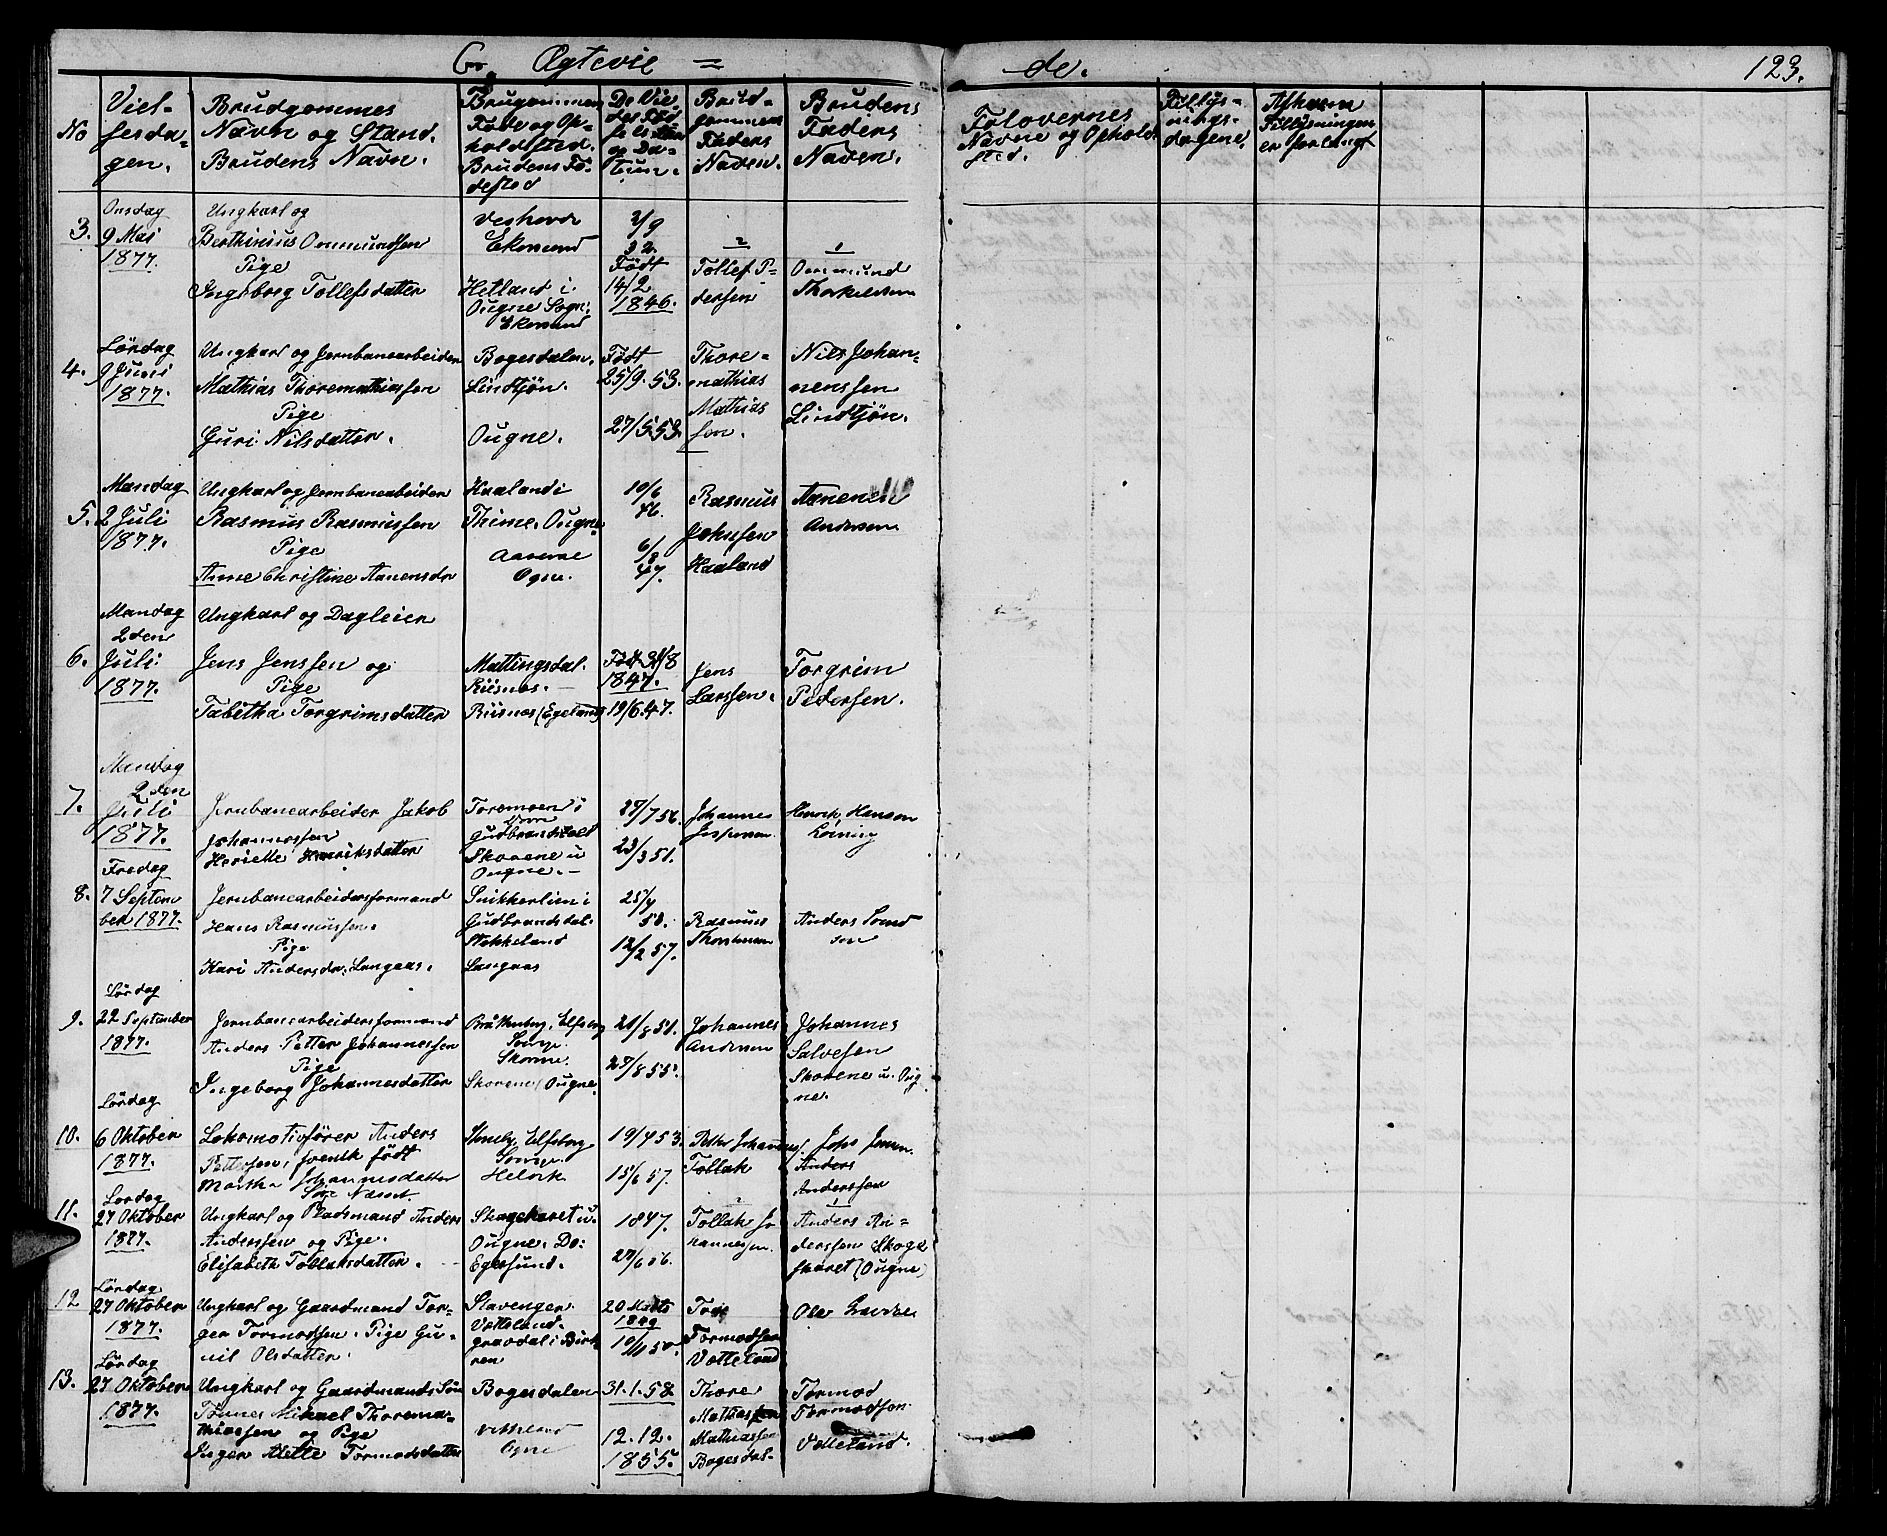 Gr. Ægtevie =
de.
123.
No
Viel-
sesda-
gen.
Brudgommes
Navn og Stand.
Brudens Navn.
Brugommen
Føde og Op-
holdssted.
Brudens Fø-
dested
De Vie-
des Fød-
selssted
og Da-
tum.
Brud-
gommens
Faders
Naven.
Brudens
Faders
Naven.
Folovernes
Navne og Opholds
sted.
Tillys-
nings-
dagene.
Tillysningen
er forlangt
3.
Onsdag
9 Mai
1877.
Ungkarl og
Berthinius Ommundsen
Pige
Ingeborg Tollefsdatter
Ekersund
Hetland i
Ougne Sogn.
Ekersund
2/9
32.
Født
14/2
1846.
2
Tollef P-
dersen
1
Ommund
Thorkildsen
4.
Lørdag
9 Juni
1877.
Ungkarl og Jernbanearbeider
Mathias Thoremathiassen
Pige
Guri Nilsdatter.
Bogesdalen.
Lindtjøn.
Ougne.
Født
25/9.53.
27/5.53.
Thore-
mathias
Mathias
sen.
Nils Johan-
nenssen
Lindtjøn.
5.
Mandag
2 Juli
1877.
Ungkarl og Jernbanearbeider
Rasmus Rasmussen
Pige
Anne Christine Aanensdr
Kaaland i
Thime. Ougne
Ogne.
10/6
46.
6/8
47.
Rasmus
Johnsen
Haaland
Aanen
Andersen
6.
Mandag
2den
Juli
1877.
Ungkarl og Dagleier
Jens Jenssen og
Pige
Tabitha Torgrimsdatter
Mattingsdal.
Riisnes.
Riisnes (Egeland)
Født 31/8
1847.
19/6.47.
Jens
Larssen.
Torgrim
Pedersen.
7.
Mandag
2den
Juli
1877.
Jernbanearbeider Jakob
Johannessen
Heriette Henriksdatter
Toremoen i
Gudbrandsdal
Skorene u
Ougne.
27/7 56.
23/3 51.
Johannes
Jespersen
Henrik Hansen
8.
Fredag
7 Septem
ber 1877.
Jernbanearbeidersformand
Hans Rasmussen.
Pige
Kari Andersdr. Langaas.
Snikkerlien i
Gudbrandsdal.
Stokkeland
Langaas
25/4
50.
12/2 57.
Rasmus
Thorstensen
Anders
sen
9.
Lørdag
22 September
1877.
Jernbanearbeidersformand
Anders Petter Johannessen
Pige
Ingeborg Johannesdatter
Elfsborg
Skorene.
Skorene (Ougne.
21/8 51.
27/8 55.
Johannes
Andersen
Johannes
Salvesen
Skorene u. Oug
ne.
10.
Lørdag
6 Oktober
1877.
Lokomotivfører Anders
Pettersen, svensk født
Martha Johannesdatter
Elfsborg
Helvik
19/4 53.
15/6 57.
Petter Johannes
Tollak
Anders
Anderssen
11.
Lørdag
27 Oktober
1877.
Ungkarl og Pladsmand Anders
Anderssen og Pige.
Elisabeth Tollaksdatter.
Skogskaret u.
Ougne. Do:
Egersund.
1847.
27/6 56.
2
Tollak Jo
hannesen.
1
Anders An-
derssen Skogs
skaret (Ougne)
12
Lørdag
27 Oktober
1877.
Ungkarl og Gaardmand Tor-
ger Tormodsen. Pige Gu-
nil Olsdatter.
Stavenger
Votteland.
gravdal i Birk
ren
20 Marts
1849
10/11 50.
Tormodsen
Votteland
Ole
13.
Lørdag
27 Oktober
1877.
Ungkarl og Gaardmands Søn
Tønnes Mikael Thorema-
thiassen og Pige
Inger Mette Tormodsdatter
Bogesdalen
Ogne
31.1.58
12.12.
1855.
Thore
Mathiassen
Mathiassen
Bogesdal-
Tormod
Tormodsen.
Votteland.